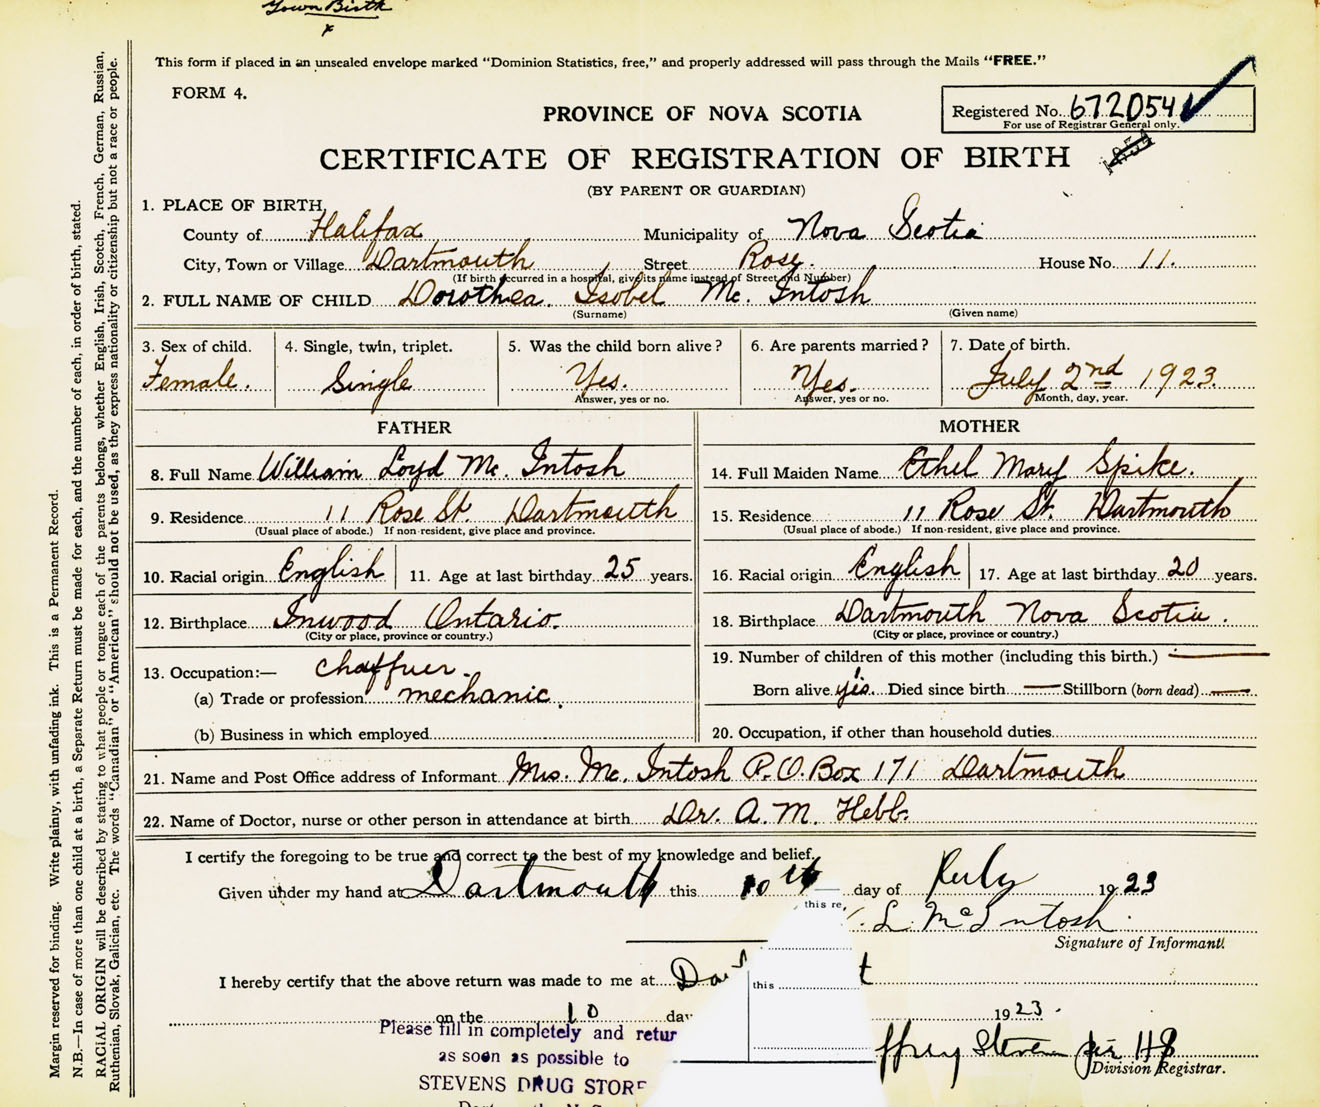 Town Birth
x
This form if placed in an unsealed envelope marked "Dominion Statistics, free," and properly addressed will pass through the Mails "FREE."
FORM 4.
PROVINCE OF NOVA SCOTIA
Registered No. 672054
For use of Registrar General only.
CERTIFICATE OF REGISTRATION OF BIRTH
(BY PARENT OR GUARDIAN)
1. PLACE OF BIRTH,
County of Halifax Municipality of Nova Scotia
City, Town or Village Dartmouth Street Rose. House No. 11.
(If birth occurred in a hospital, give its name instead of Street and Number)
2. FULL NAME OF CHILD Dorothea. Isobel Mc. Intosh
(Surname) (Given name)
3. Sex of child. 4. Single, twin, triplet. 5. Was the child born alive? 6. Are parents married? 7. Date of birth.
Female. Single Yes. Yes. July 2nd 1923.
Answer, yes or no. Answer, yes or no. Month, day, year.
FATHER MOTHER
8. Full Name William Loyd Mc. Intosh 14. Full Maiden Name Ethel Mary Spike.
9. Residence 11 Rose St. Dartmouth 15. Residence 11 Rose St. Dartmouth
(Usual place of abode.) If non-resident, give place and province. (Usual place of abode.) If non-resident, give place and province.
10. Racial origin English 11. Age at last birthday 25 years. 16. Racial origin English 17. Age at last birthday 20 years.
12. Birthplace Inwood Ontario. 18. Birthplace Dartmouth Nova Scotia.
(City or place, province or country.) (City or place, province or country.)
13. Occupation:— chaffuer. 19. Number of children of this mother (including this birth.) —
(a) Trade or profession mechanic. Born alive yis. Died since birth — Stillborn (born dead) —
(b) Business in which employed 20. Occupation, if other than household duties
21. Name and Post Office address of Informant Mrs. Mc. Intosh P.O. Box 171 Dartmouth
22. Name of Doctor, nurse or other person in attendance at birth Dr. A. M. Hebb.
I certify the foregoing to be true and correct to the best of my knowledge and belief.
Given under my hand at Dartmouth this 10th day of July 1923
this re,
L McIntosh.
Signature of Informant.
I hereby certify that the above return was made to me at
this
on the 10 day 1923.
Please fill in completely and retur
as soon as possible to
STEVENS DRUG STORE
ffrey Steven per HS
Division Registrar.
Margin reserved for binding. Write plainly, with unfading ink. This is a Permanent Record.
N.B.—In case of more than one child at a birth, a Separate Return must be made for each, and the number of each, in order of birth, stated.
RACIAL ORIGIN will be described by stating to what people or tongue each of the parents belongs, whether English, Irish, Scotch, French, German, Russian,
Ruthenian, Slovak, Galician, etc. The words "Canadian" or "American" should not be used, as they express nationality or citizenship but not a race or people.